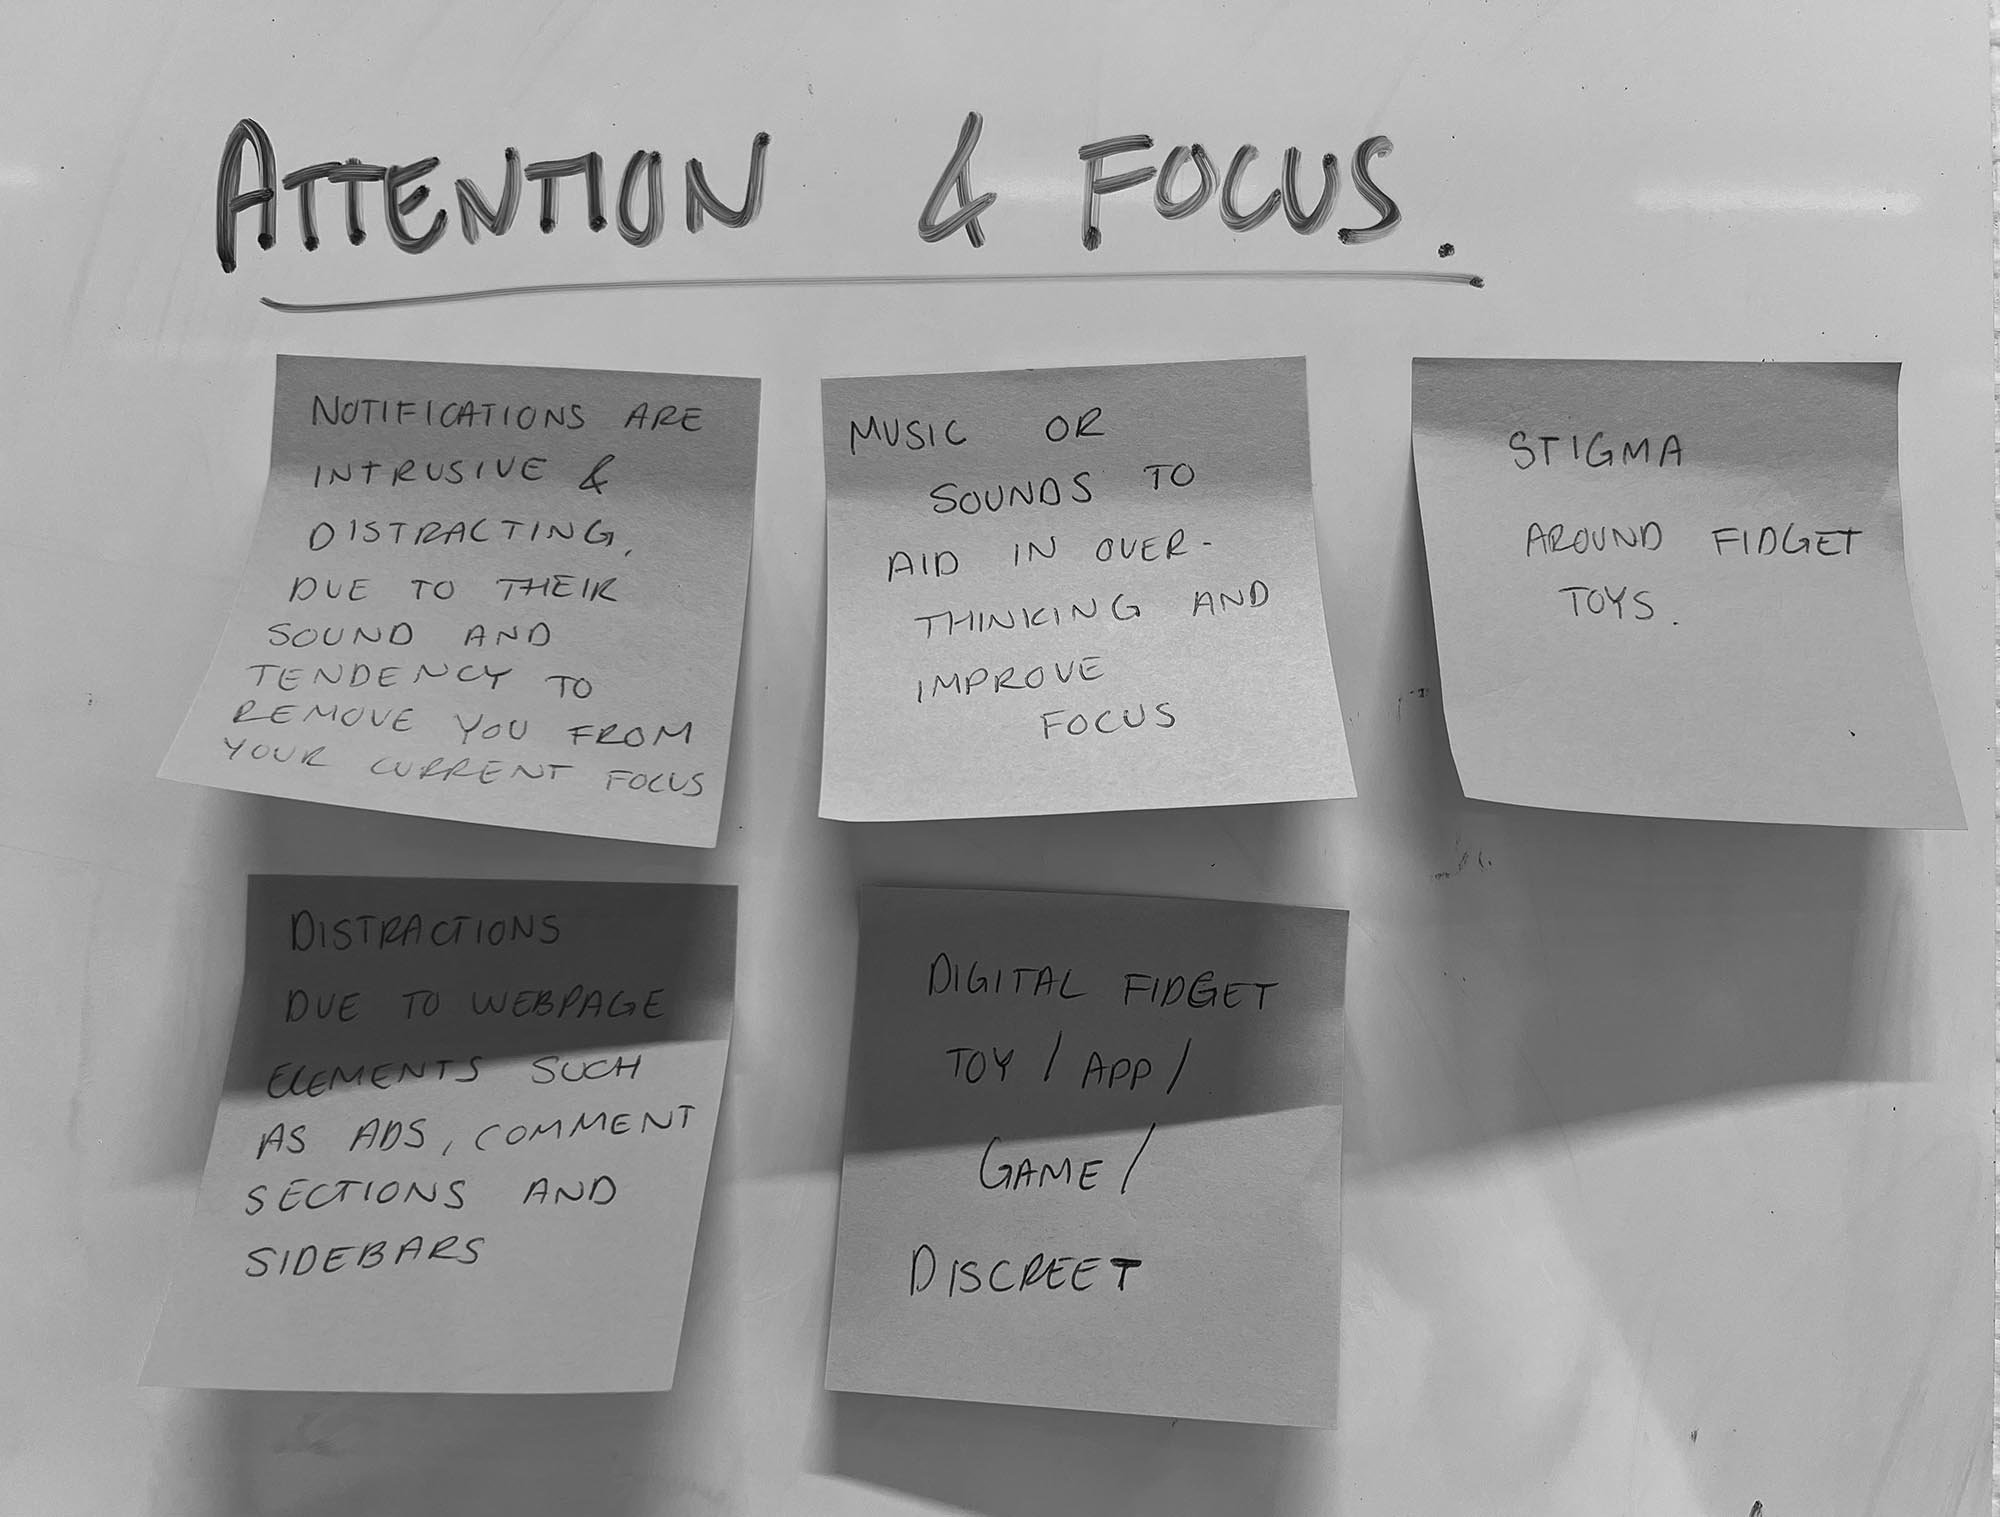 ATTENTION & FOCUS.
NOTIFICATIONS ARE
INTRUSIVE &
DISTRACTING,
DUE TO THEIR
SOUND AND
TENDENCY TO
REMOVE YOU FROM
YOUR CURRENT FOCUS
MUSIC OR
SOUNDS TO
AID IN OVER-
THINKING AND
IMPROVE
FOCUS
STIGMA
AROUND FIDGET
TOYS.
DISTRACTIONS
DUE TO WEBPAGE
ELEMENTS SUCH
AS ADS, COMMENT
SECTIONS AND
SIDEBARS
DIGITAL FIDGET
TOY / APP /
GAME /
DISCREET